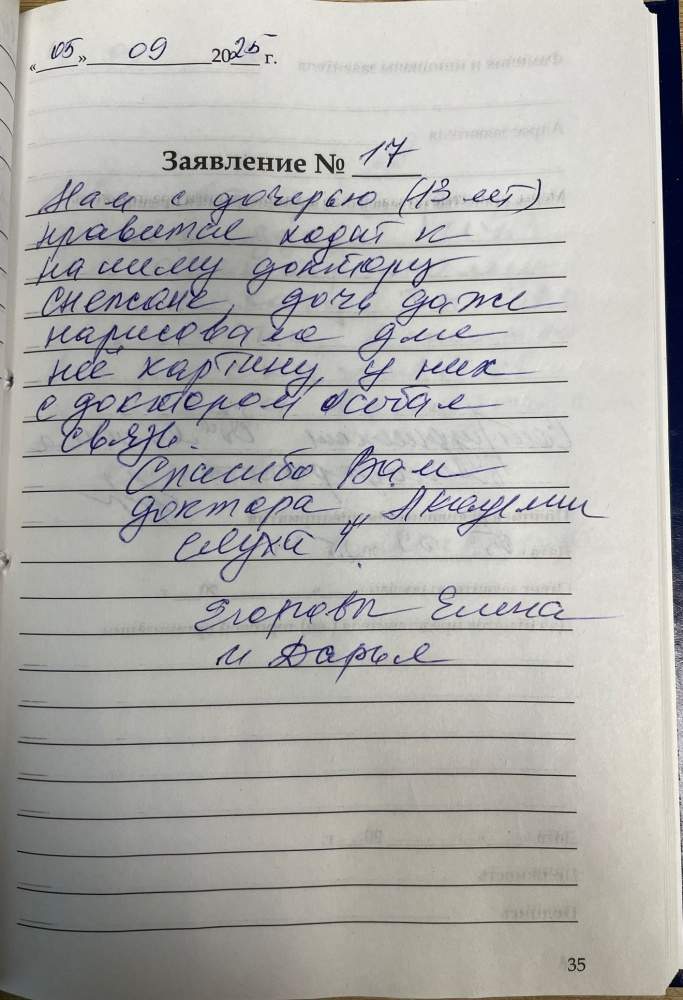 «05» 09 2025 г.
Заявление № 17
Нам с дочерью (13 лет)
нравится ходит к
нашиму доктору
Снежане, дочь даже
нарисовала для
неё картину, у них
с доктором особая
связь.
Спасибо Вам
доктора Академии
слуха!
Егоровы Елена
и Дарья
35